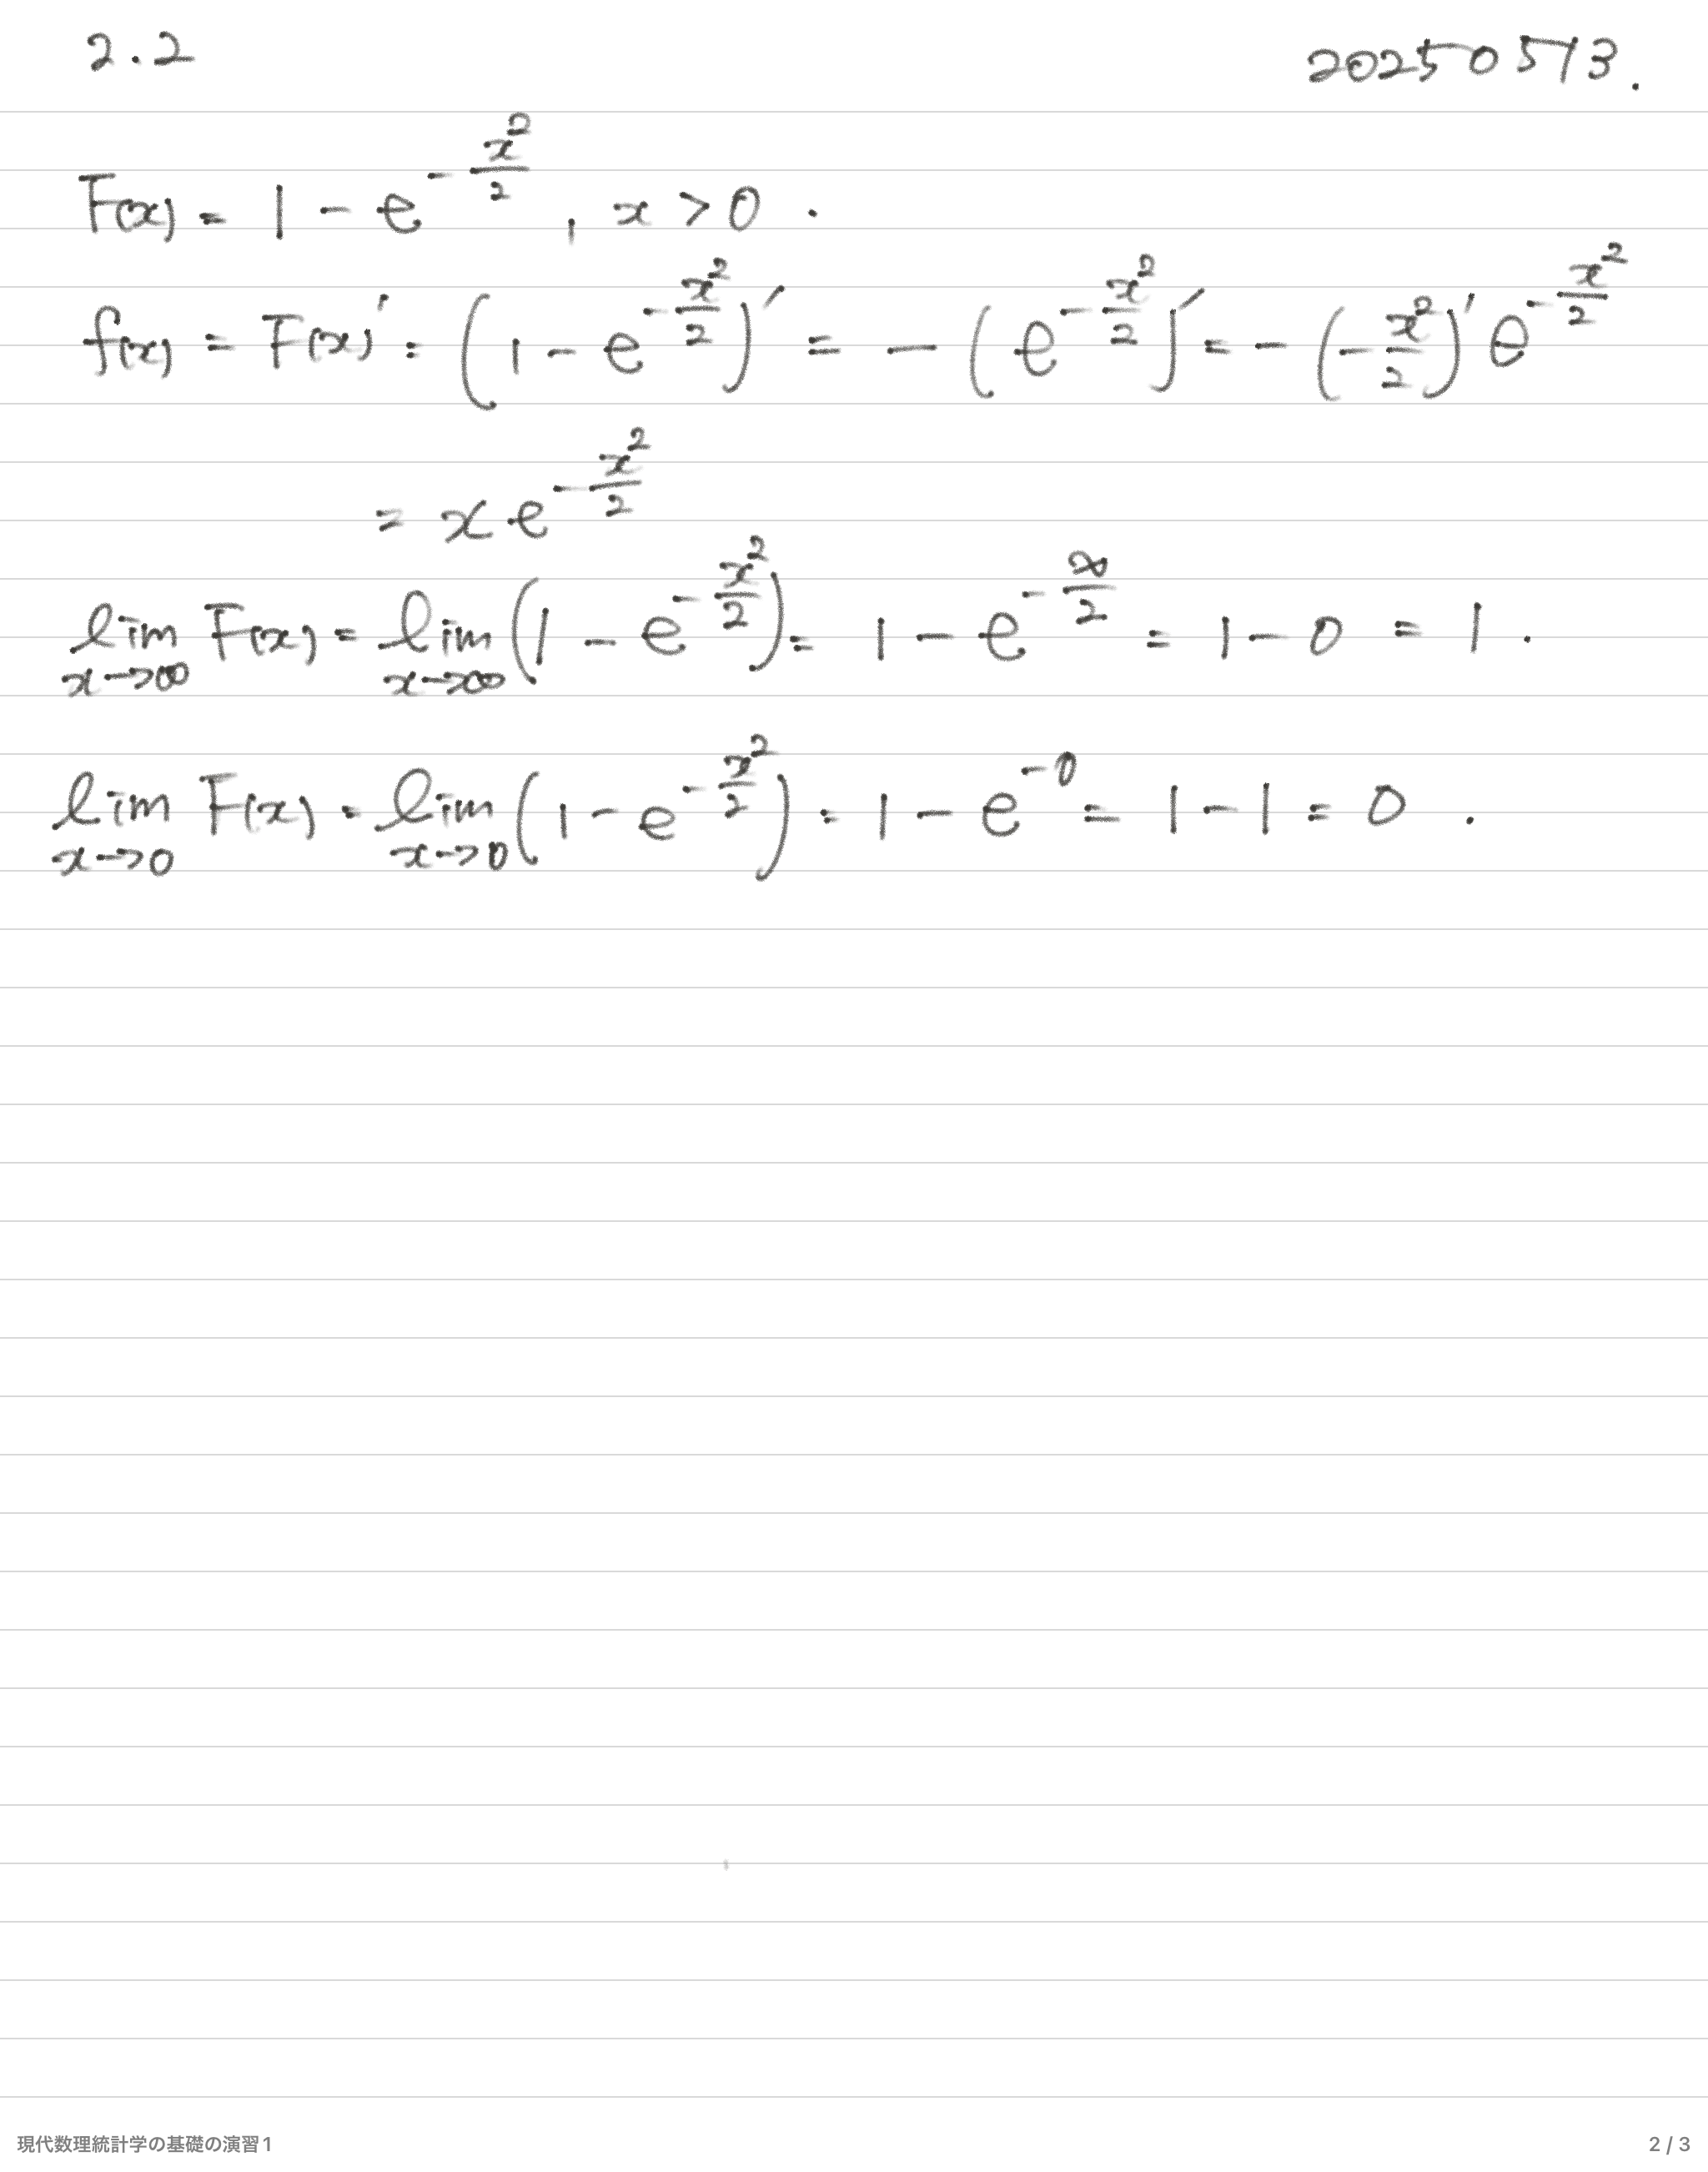 2.2 20250513.
F(x) = 1 - e^{-\frac{x^2}{2}}, x > 0.
f(x) = F(x)' = (1 - e^{-\frac{x^2}{2}})' = -(e^{-\frac{x^2}{2}})' = -(-\frac{x^2}{2})' e^{-\frac{x^2}{2}}
= x e^{-\frac{x^2}{2}}
\lim_{x→∞} F(x) = \lim_{x→∞} (1 - e^{-\frac{x^2}{2}}) = 1 - e^{-\frac{∞}{2}} = 1 - 0 = 1.
\lim_{x→0} F(x) = \lim_{x→0} (1 - e^{-\frac{x^2}{2}}) = 1 - e^{-0} = 1 - 1 = 0.
現代数理統計学の基礎の演習1 2 / 3